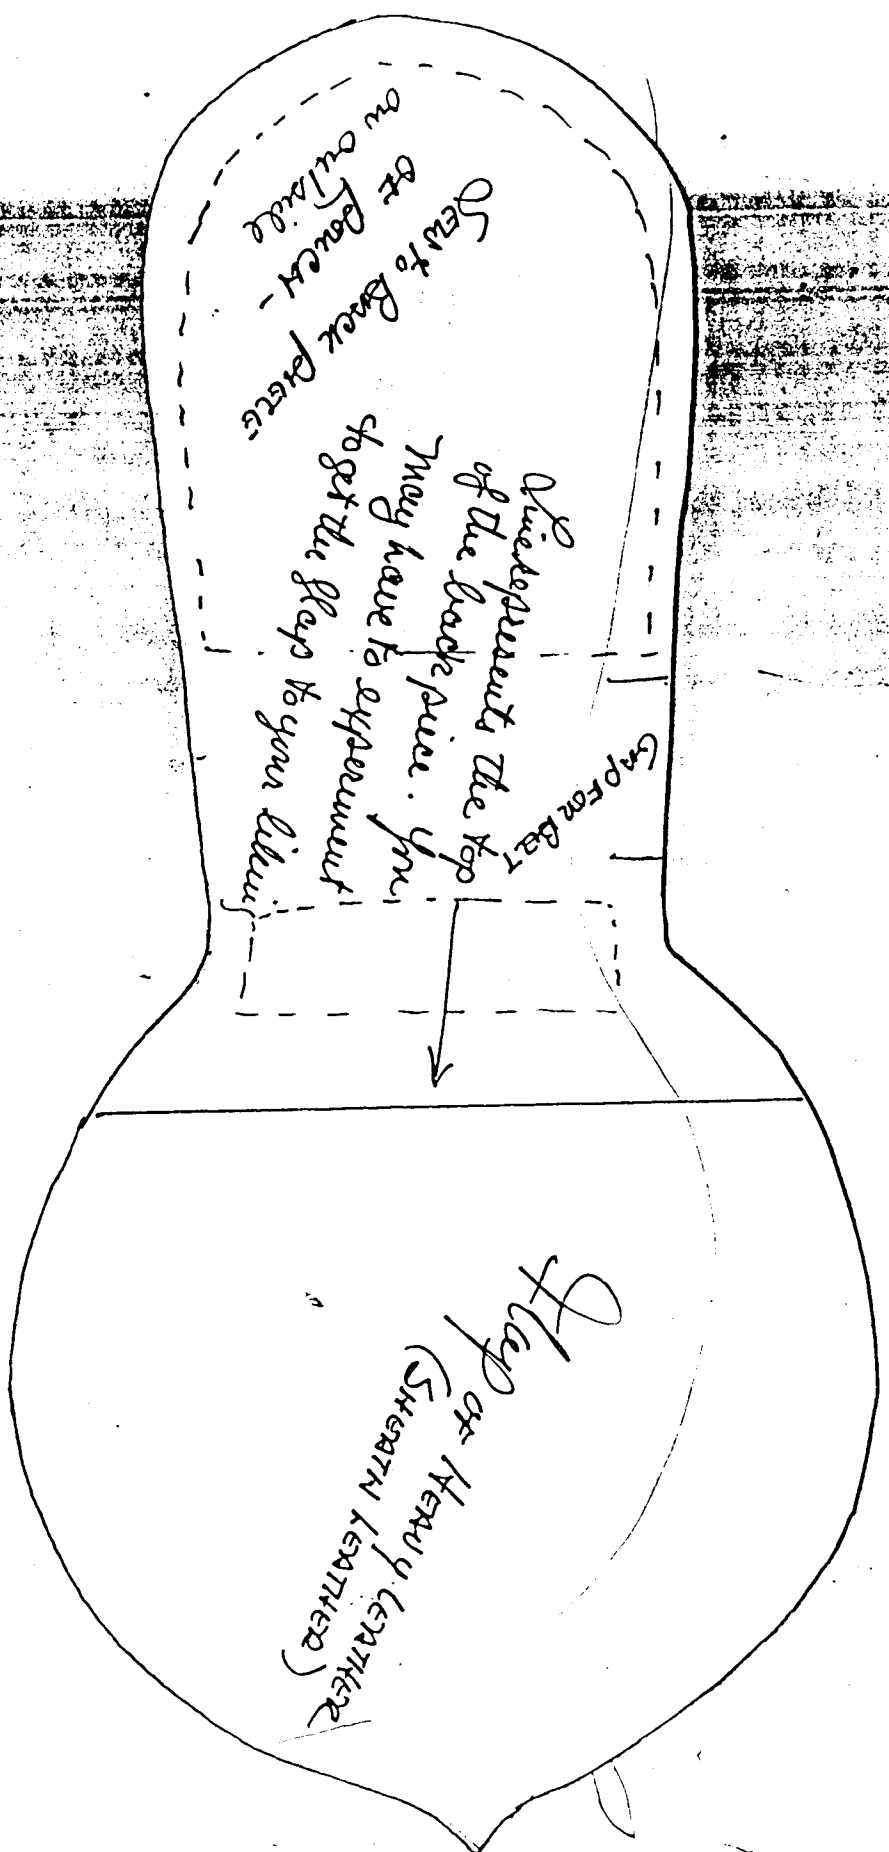 Sew to Back piece
of Pouch -
on outside
Line represents the top
of the back piece. You
may have to experiment
to get the flap to your liking
Gap For Belt
Flap of Heavy Leather
(Sheath Leather)